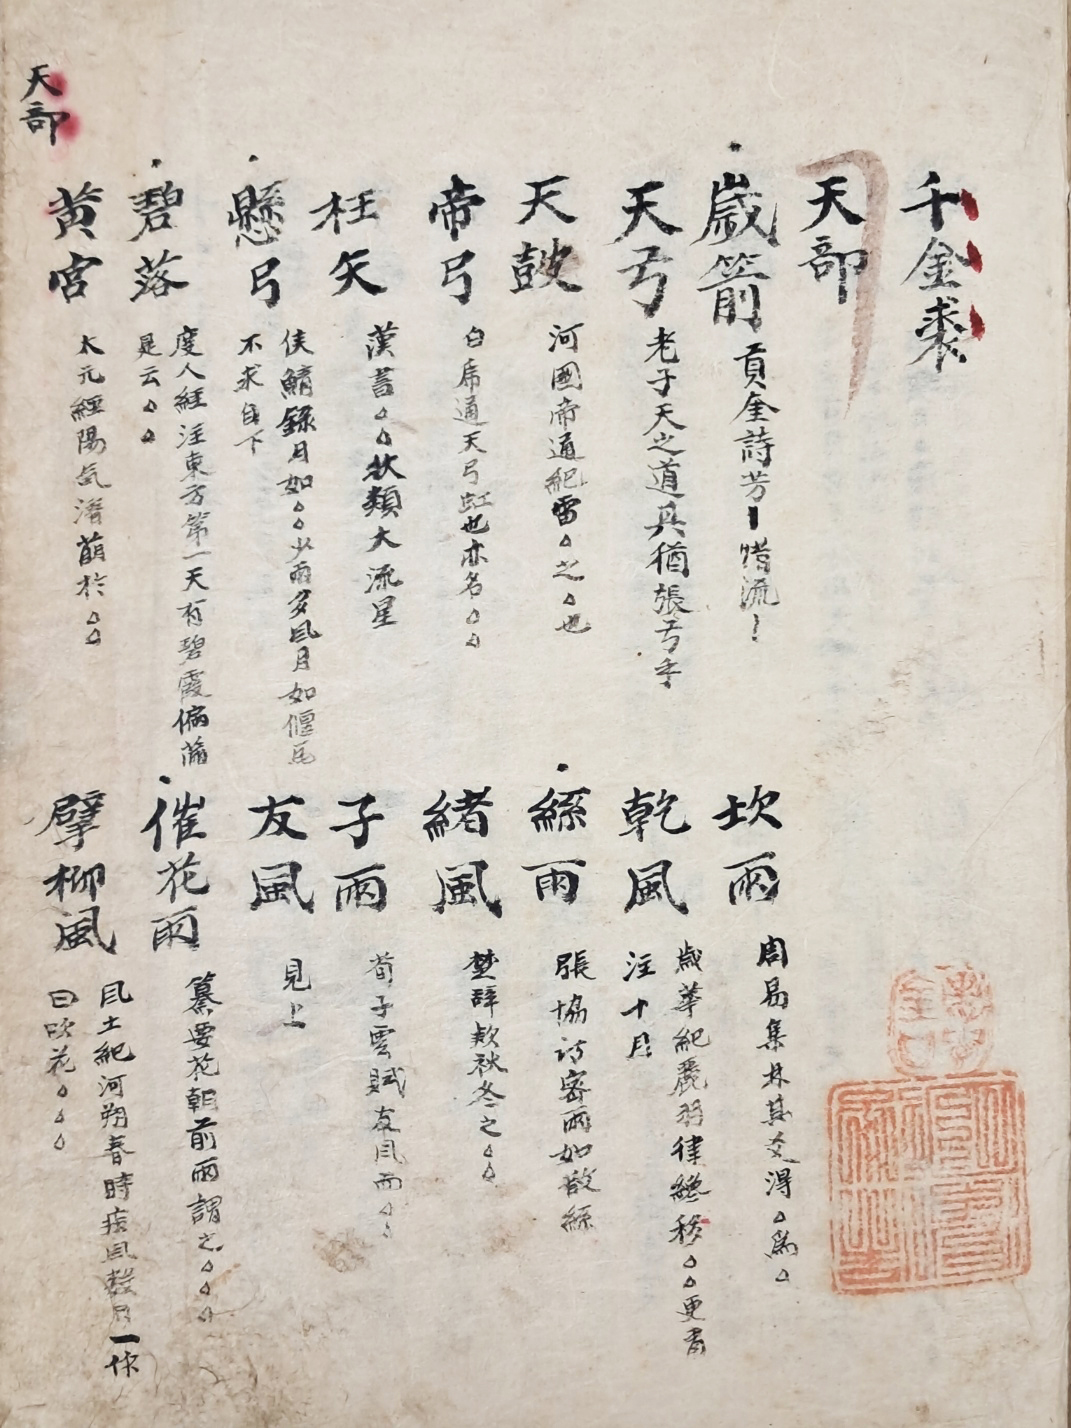 千金裘
天部
歲箭
貢奎詩芳丨惜流丨
天弓
老子天之道其猶張弓乎
天鼓
河圖帝通紀雷△之△也
帝弓
白虎通天弓虹也亦名△△
枉矢
漢書△△狀類大流星
懸弓
侯鯖錄月如△△少雨多風月如偃瓦
不求自下
碧落
度人經注東方第一天有碧霞徧滿
是云△△
黃宮
太元經陽気潛萌於△△
坎雨
周易集林其爻得△為△
乾風
歲華紀麗羽律纔移△△更肅
注十月
絲雨
張協詩密雨如散絲
緒風
楚辞欸秋冬之△△
子雨
荀子雲賦友風而△△
友風
見上
催花雨
纂要花朝前雨謂之△△△
擘柳風
風土紀河朔春時疾風數日一作
曰吹花△△△
天部